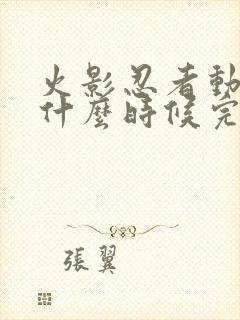 火影忍者動
什麼時候完
張翼